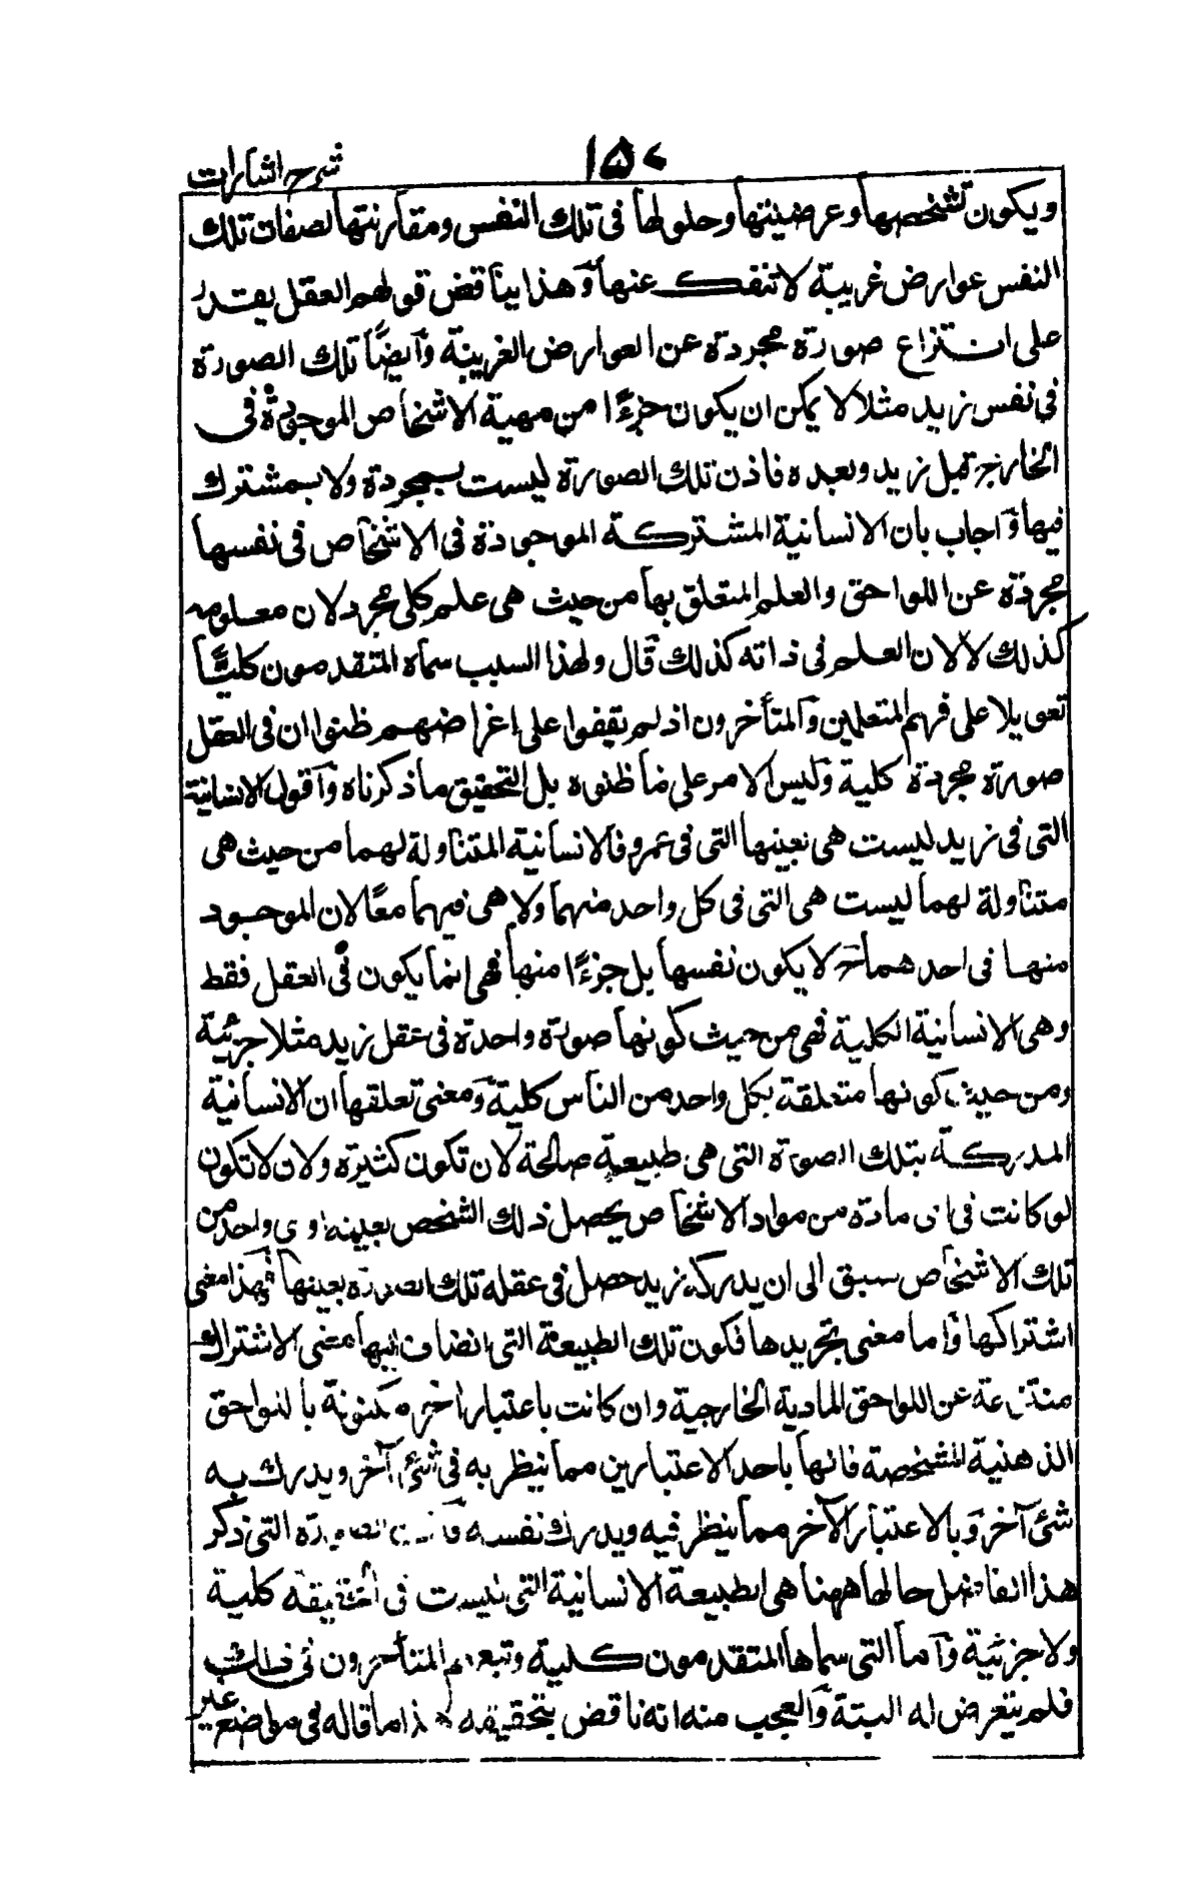 ١٥٠
شرح اشارات
ويكون تشخصها وعرضيتها وحلولها فى تلك النفس ومقارنتها لصفات تلك
النفس عوارض غريبة لا تنفك عنها وهذا يناقض قولهم العقل يقتدر
على انتزاع صورة مجردة عن العوارض الغريبة وأيضًا تلك الصورة
فى نفس زيد مثلا لا يمكن ان يكون جزءًا من مهية الاشخاص الموجودة فى
الخارج قبل زيد وبعده فاذن تلك الصورة ليست بمجردة ولا بمشترك
فيها وأجاب بان الانسانية المشتركة الموجودة فى الاشخاص فى نفسها
مجردة عن اللواحق والعلم المتعلق بها من حيث هى علم كلى مجرد لان معلومه
كذلك لا لان العلم فى ذاته كذلك قال ولهذا السبب سماه المتقدمون كليًّا
تعويلا على فهم المتعلمين والمتأخرون اذ لم يقفوا على اغراضهم ظنوا ان فى العقل
صورة مجردة كلية وليس الامر على ما ظنوه بل التحقيق ما ذكرناه وأقول الانسانية
التى فى زيد ليست هى بعينها التى فى عمرو فالانسانية المتناولة لهما من حيث هى
متناولة لهما ليست هى التى فى كل واحد منهما ولا هى فيهما معًا لان الموجود
منها فى احدهما لا يكون نفسها بل جزءًا منها فهى انما يكون فى العقل فقط
وهى الانسانية الكلية فهى من حيث كونها صورة واحدة فى عقل زيد مثلا جزئية
ومن حيث كونها متعلقة بكل واحد من الناس كلية ومعنى تعلقها ان الانسانية
المدركة بتلك الصورة التى هى طبيعة صالحة لان تكون كثيرة ولان لا تكون
لو كانت فى اى مادة من مواد الاشخاص يحصل ذلك الشخص بعينه او اى واحد من
تلك الاشخاص سبق الى ان يدركه زيد حصل فى عقله تلك الصورة بعينها فهذا معنى
اشتراكها وأما معنى تجريدها فكون تلك الطبيعة التى انضاف اليها معنى الاشتراك
منتزعة عن اللواحق المادية الخارجية وان كانت باعتبار آخر مكنونة باللواحق
الذهنية المشخصة فانها باحد الاعتبارين مما ينظر به فى شئ آخر ويدرك به
شئ آخر وبالاعتبار الآخر مما ينظر فيه ويدرك نفسه التى ذكر
هذا الفاضل حالها ههنا هى الطبيعة الانسانية التى ليست فى الحقيقة كلية
ولا جزئية وأما التى سماها المتقدمون كلية وتبعهم المتأخرون فى ذلك
فلم يتعرض له البتة والعجب منه انه ناقض بتحقيقه هذا ما قاله فى مواضع
غير